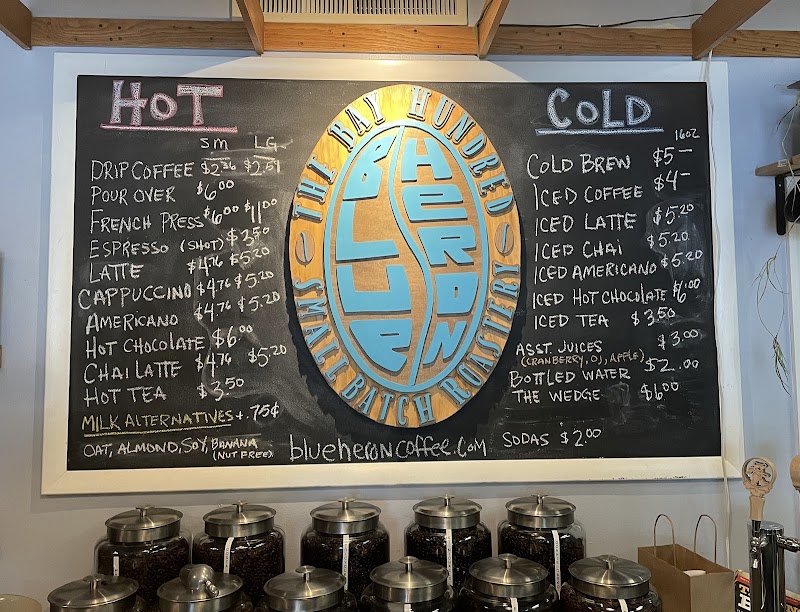 HOT
SM LG
DRIP COFFEE $2³⁶ $2.59
POUR OVER $6.00
FRENCH PRESS $6.00 $11.00
ESPRESSO (SHOT) $3.50
LATTE $4.76 $5.20
CAPPUCCINO $4.76 $5.20
AMERICANO $4.76 $5.20
HOT CHOCOLATE $6.00
CHAI LATTE $4.76 $5.20
HOT TEA $3.50
MILK ALTERNATIVES +.75¢
OAT, ALMOND, SOY, BANANA
(NUT FREE)
THE BAY HUNDRED
BLUE
HERON
SMALL BATCH ROASTERY
blueheroncoffee.com
COLD
16OZ
COLD BREW $5—
ICED COFFEE $4—
ICED LATTE $5.20
ICED CHAI $5.20
ICED AMERICANO $5.20
ICED HOT CHOCOLATE $6.00
ICED TEA $3.50
ASST. JUICES $3.00
(CRANBERRY, OJ, APPLE)
BOTTLED WATER $2.00
THE WEDGE $6.00
SODAS $2.00